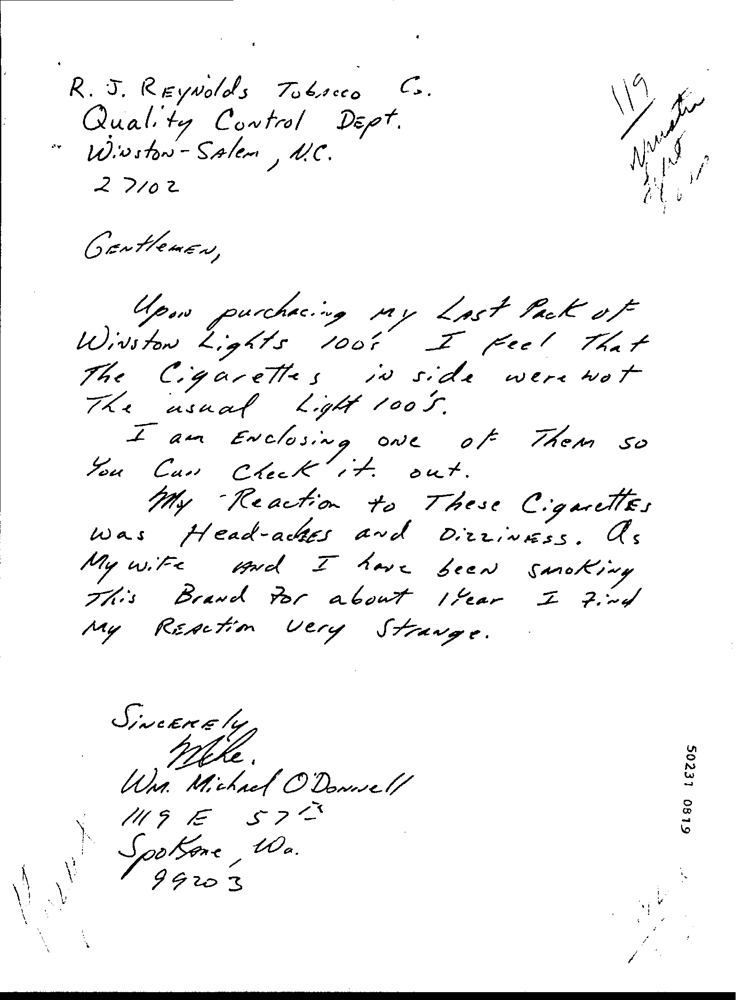 R. J. Reynolds Tobacco Co.
Quality Control Dept.
Winston-Salem, N.C.
27102
119
Gentlemen,
Upon purchacing my Last Pack of
Winston Lights 100's I feel That
The Cigarettes in side were not
The usual Light 100's.
I am Enclosing one of Them so
You Can Check it out.
My Reaction to These Cigarettes
was Head-aches and Dizziness. As
My wife and I have been smoking
This Brand For about 1 Year I Find
My Reaction Very Strange.
Sincerely
Mike.
Wm. Michael O'Donnell
1119 E 57th
Spokane, Wa.
99203
50231 0819